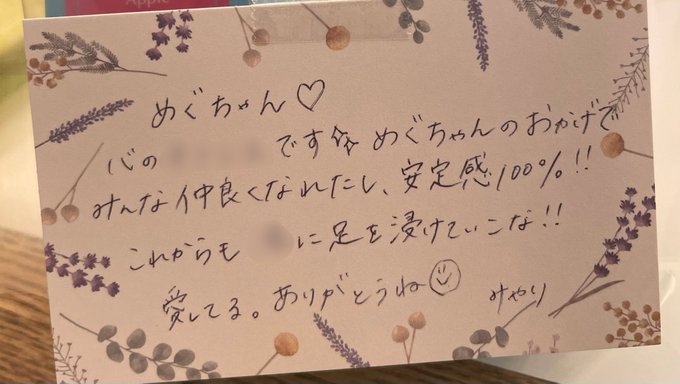 Apple
めぐちゃん♡
心の です☆ めぐちゃんのおかげで
みんな仲良くなれたし、安定感100%!!
これからも に足を浸けていこな!!
愛してる。ありがとうね☺ みやり